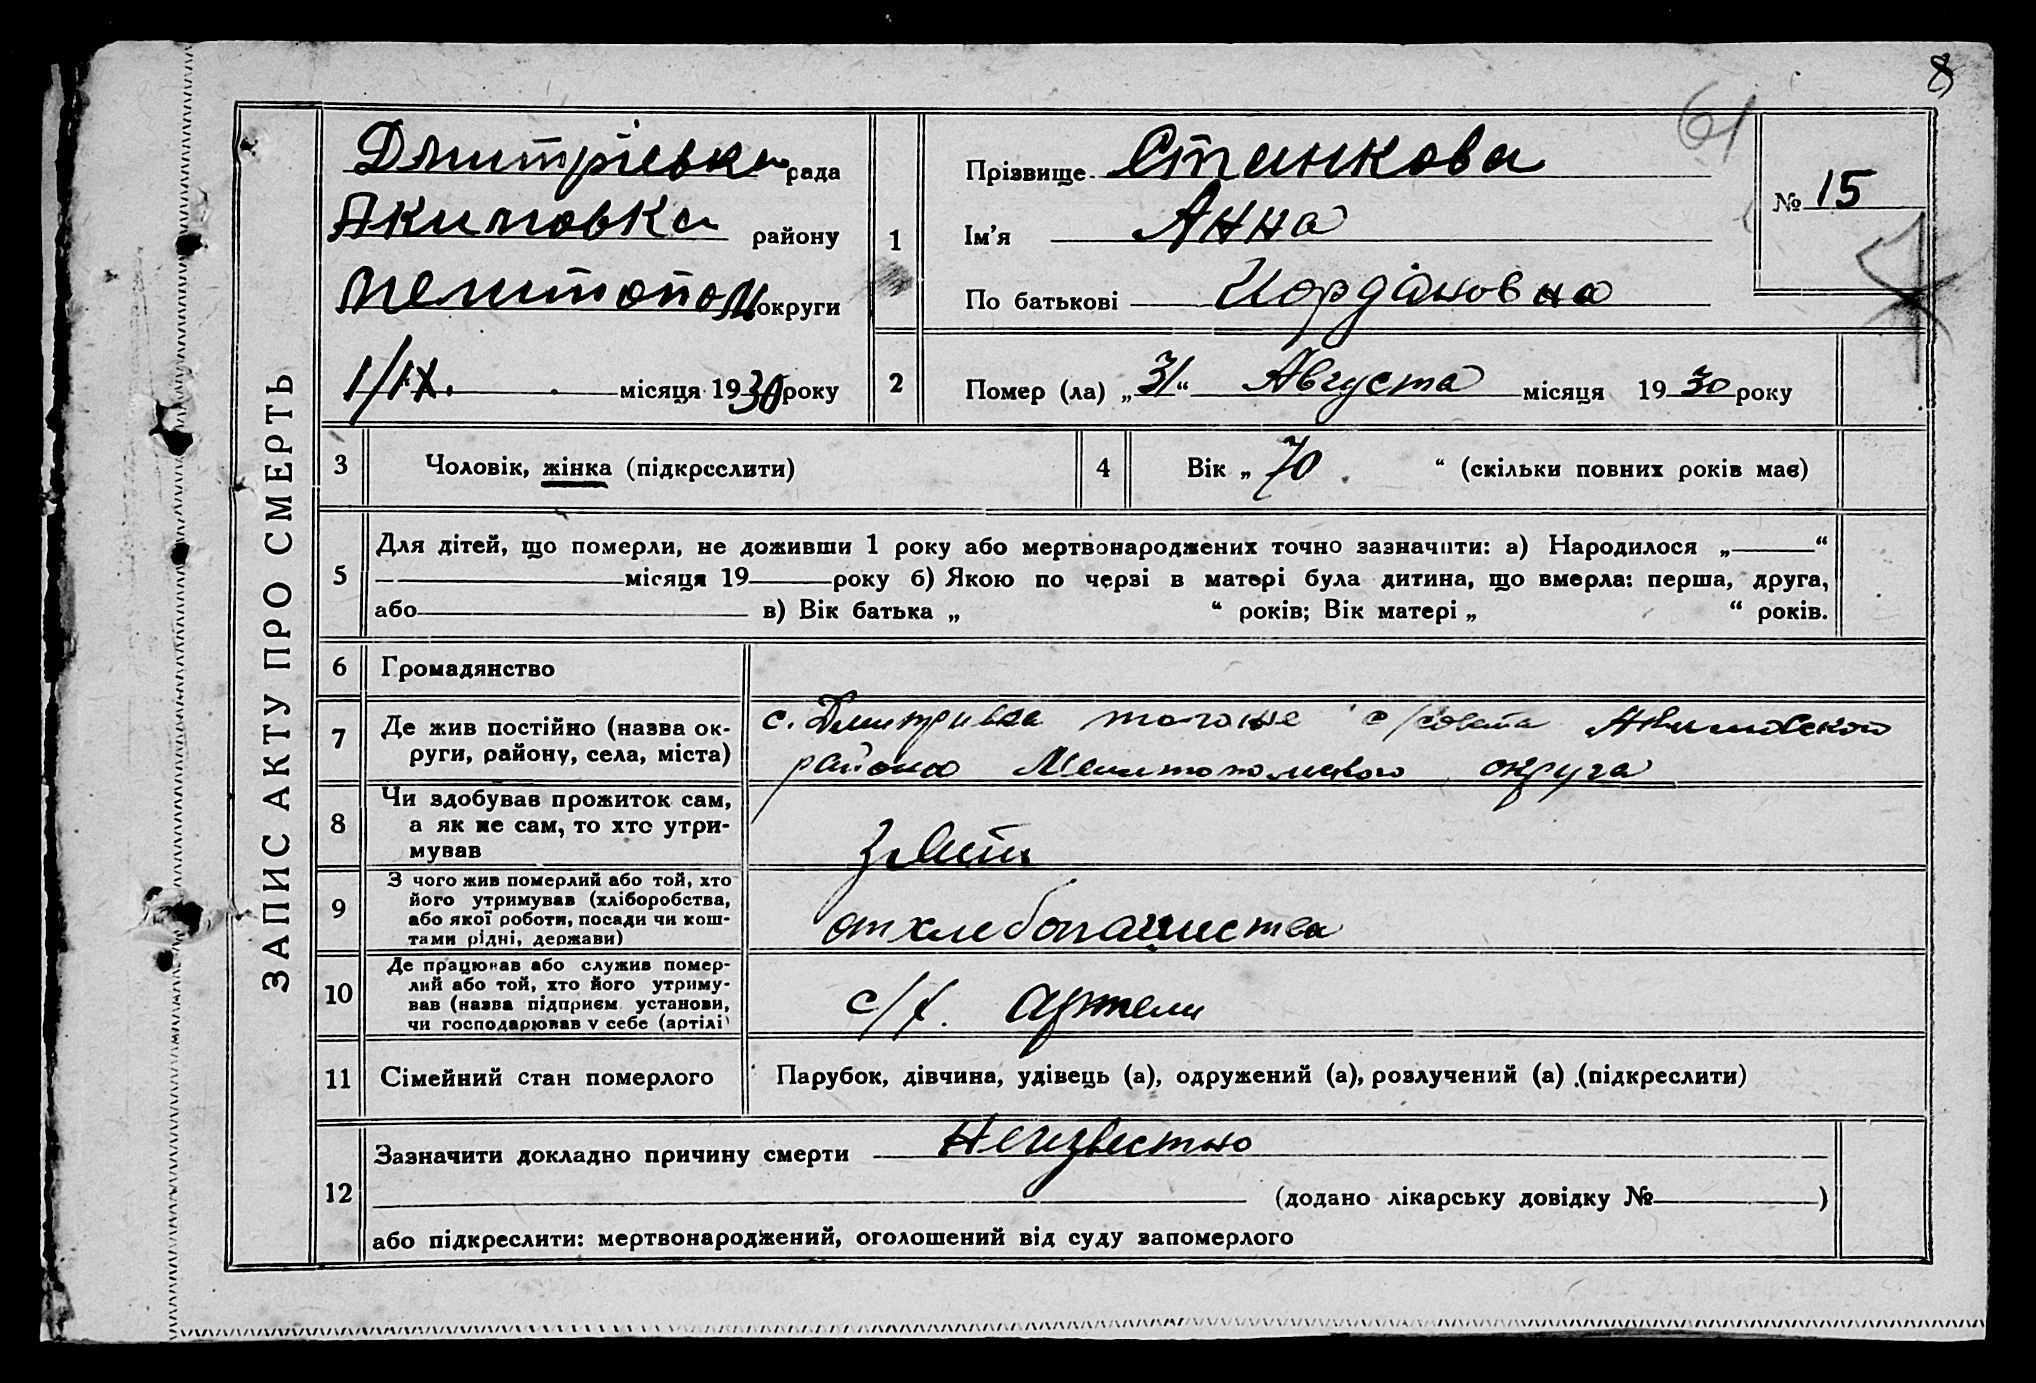 8
61
ЗАПИС АКТУ ПРО СМЕРТЬ
Дмитрієвка рада
Акимовка району
Мелитопол округи
1/IX. місяця 1930 року
1
Прізвище Станкова
Ім’я Анна
По батькові Иордановна
№ 15
2
Помер (ла) „31“ Августа місяця 1930 року
3
Чоловік, жінка (підкреслити)
4
Вік „70“ (скільки повних років має)
5
Для дітей, що померли, не доживши 1 року або мертвонароджених точно зазначити: а) Народилося „ “
місяця 19 року б) Якою по черзі в матері була дитина, що вмерла: перша, друга,
або в) Вік батька „ “ років; Вік матері „ “ років.
6
Громадянство
7
Де жив постійно (назва ок-
руги, району, села, міста)
с. Дмитривка с/совета Акимовского
района Мелитопольского округа
8
Чи здобував прожиток сам,
а як не сам, то хто утри-
мував
9
З чого жив померлий або той, хто
його утримував (хліборобства,
або якої роботи, посади чи кош-
тами рідні, держави)
от хлебопашества
10
Де працював або служив помер-
лий або той, хто його утриму-
вав (назва підприєм установи,
чи господарював у себе (артілі)
с/х. артели
11
Сімейний стан померлого
Парубок, дівчина, удівець (а), одружений (а), розлучений (а) (підкреслити)
12
Зазначити докладно причину смерти Неизвестно
(додано лікарську довідку № )
або підкреслити: мертвонароджений, оголошений від суду запомерлого